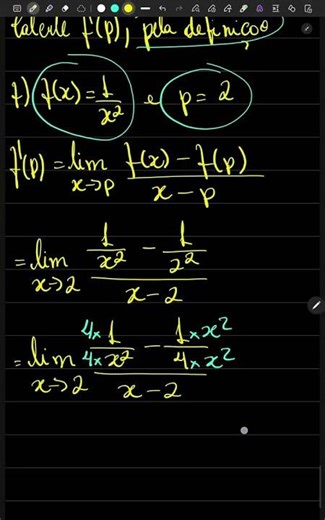 Calcule f'(p), pela definição
f) f(x) = 1/x² e p = 2
f'(p) = lim x→p (f(x) − f(p))/(x − p)
= lim x→2 (1/x² − 1/2²)/(x − 2)
= lim x→2 ((4×1)/(4×x²) − (1×x²)/(4×x²))/(x − 2)